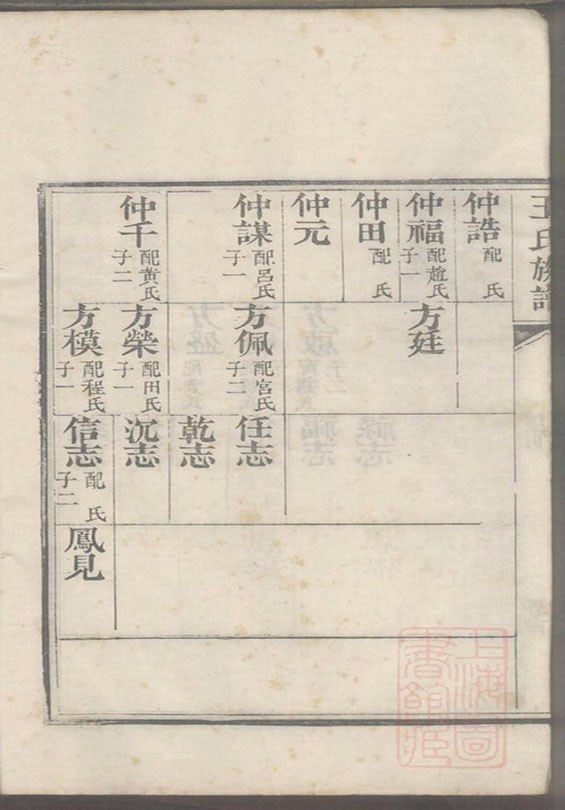 王氏族譜
仲誥 配 氏
仲福 配趙氏 子一
仲田 配 氏
仲元
仲謀 配呂氏 子一
仲千 配黄氏 子二
方廷
方佩 配宮氏 子二
方榮 配田氏 子一
方模 配程氏 子一
任志
乾志
沉志
信志 配 氏 子二
鳳見
上海圖書館藏